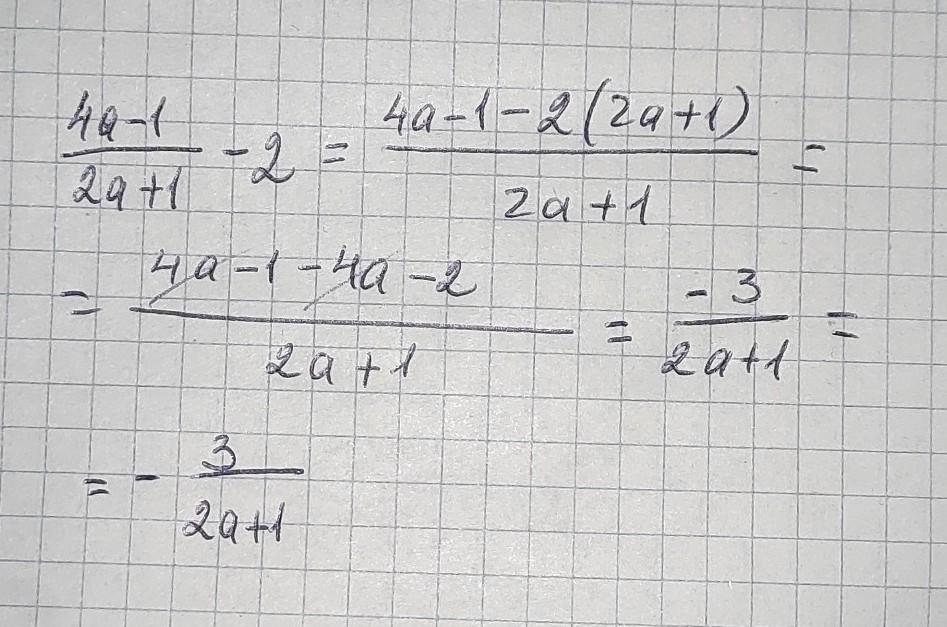 (4a-1)/(2a+1) - 2 = (4a-1-2(2a+1))/(2a+1) =
= (4a-1-4a-2)/(2a+1) = (-3)/(2a+1) =
= - 3/(2a+1)